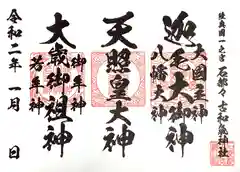 陸奥国一之宮 石都々古和氣神社
大国主神
迦毛大御神
八幡大神
天照皇大神
御年神
大歳御祖神
若年神
令和二年 一月 日